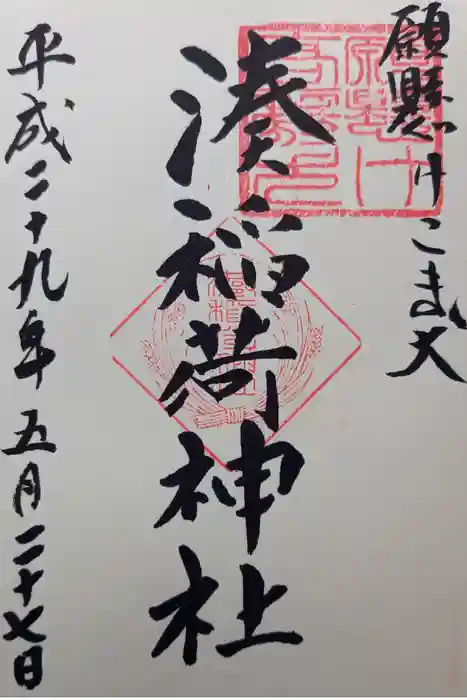 願懸けこま犬
湊稲荷神社
平成二十九年五月二十七日